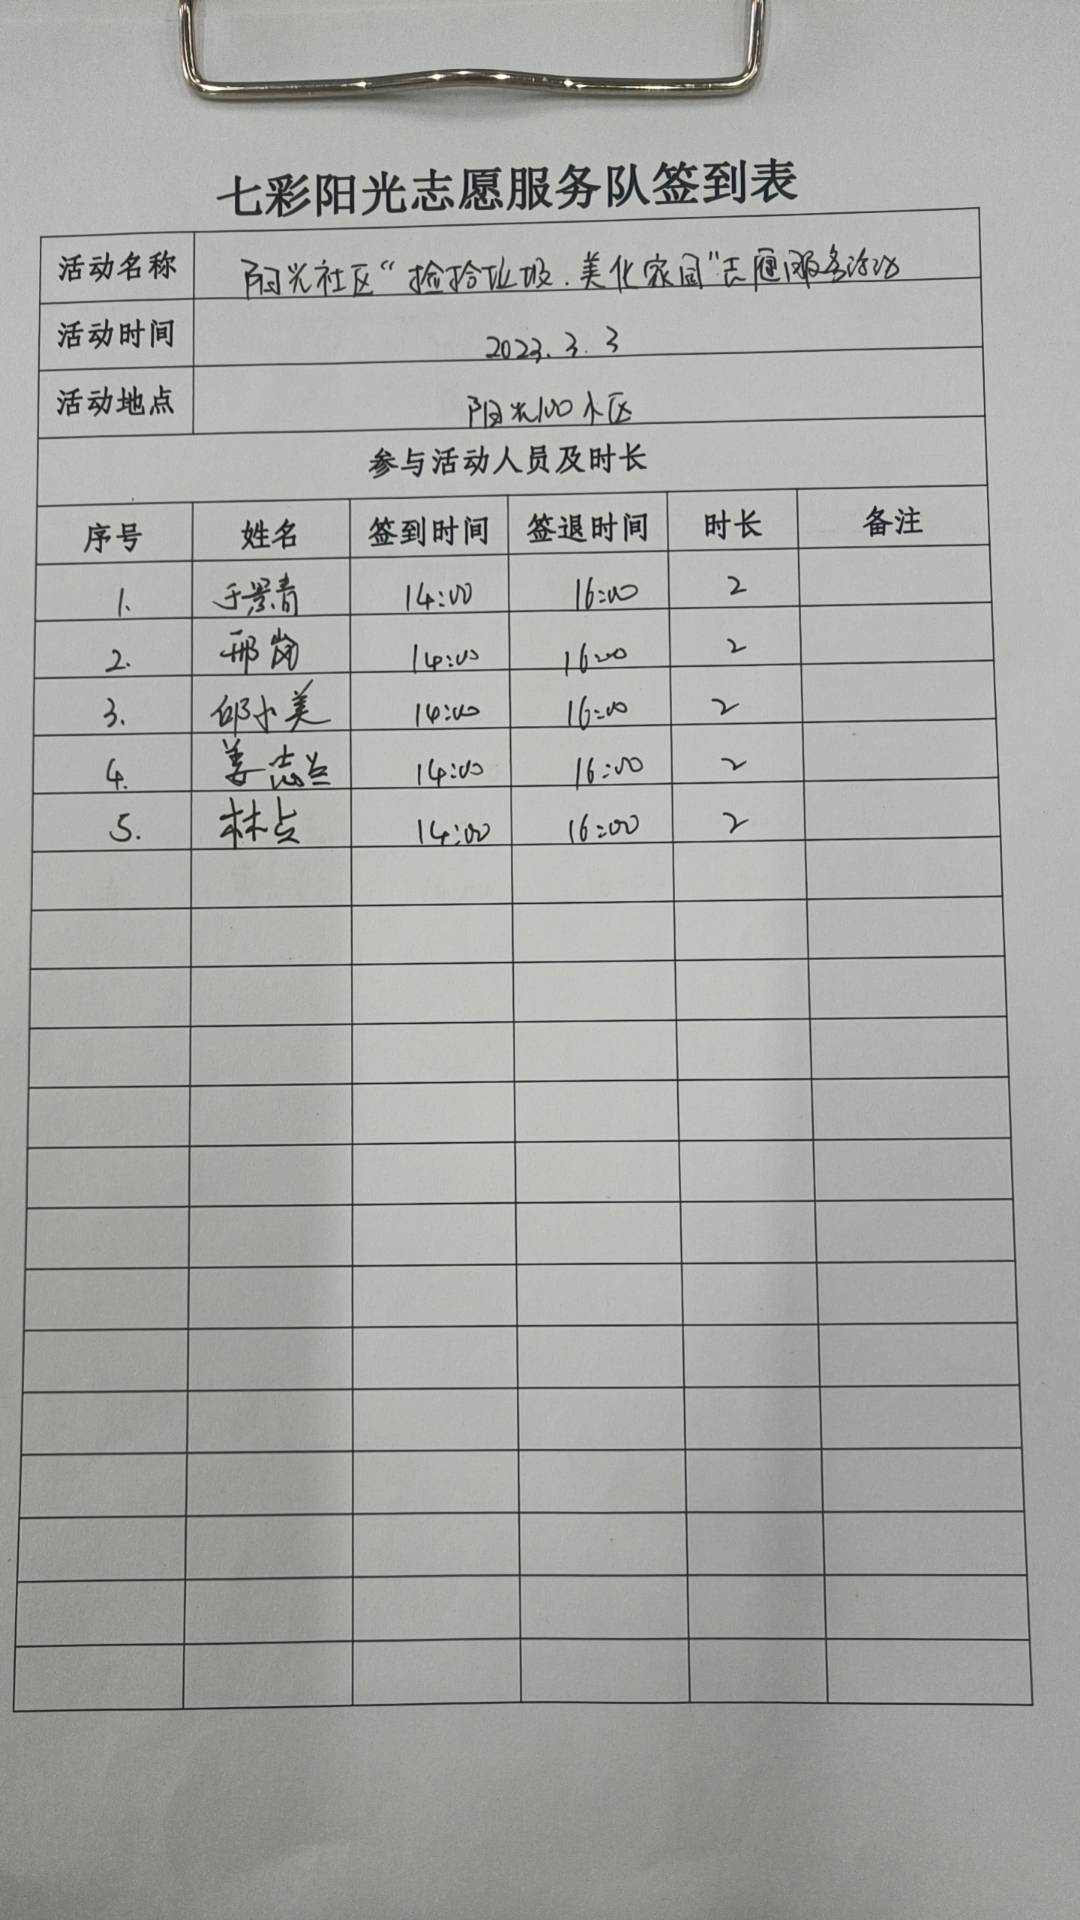 七彩阳光志愿服务队签到表
活动名称 阳光社区“捡拾垃圾.美化家园”志愿服务活动
活动时间 2023.3.3
活动地点 阳光100小区
参与活动人员及时长
序号 姓名 签到时间 签退时间 时长 备注
1. 于景青 14:00 16:00 2
2. 邢岗 14:00 16:00 2
3. 邱小美 14:00 16:00 2
4. 姜志兰 14:00 16:00 2
5. 林占 14:00 16:00 2